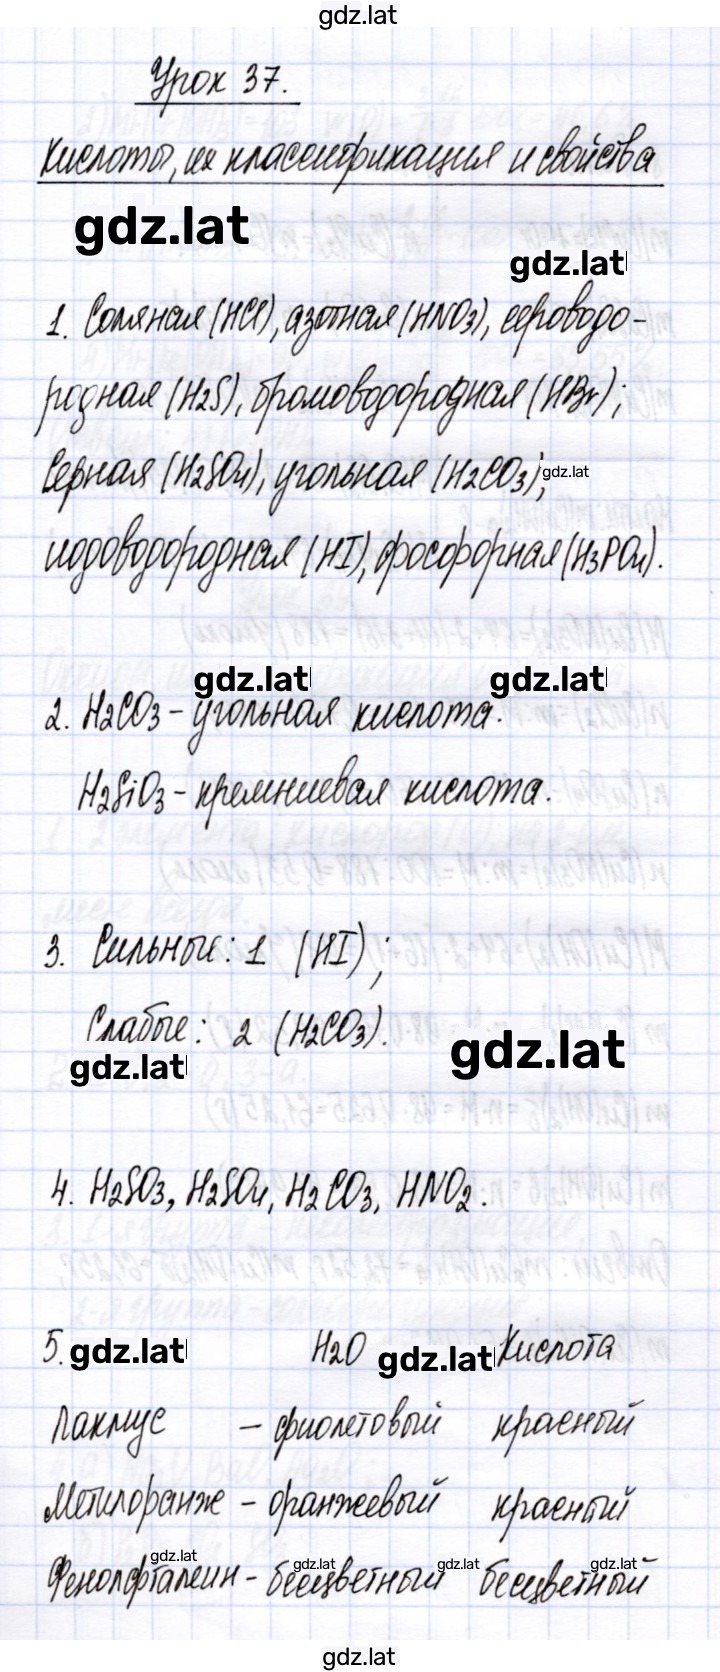 gdz.lat
Урок 37.
Кислоты, их классификация и свойства
gdz.lat
gdz.lat
1. Соляная (HCl), азотная (HNO3), сероводо-
родная (H2S), бромоводородная (HBr);
Серная (H2SO4), угольная (H2CO3); gdz.lat
иодоводородная (HI), фосфорная (H3PO4).
gdz.lat gdz.lat
2. H2CO3 - угольная кислота.
H2SiO3 - кремниевая кислота.
3. Сильные: 1 (HI);
Слабые: 2 (H2CO3).
gdz.lat gdz.lat
4. H2SO3, H2SO4, H2CO3, HNO2.
5. gdz.lat H2O gdz.lat Кислота
Лакмус - фиолетовый красный
Метилоранж - оранжевый красный
gdz.lat gdz.lat gdz.lat gdz.lat
Фенолфталеин - бесцветный бесцветный
gdz.lat